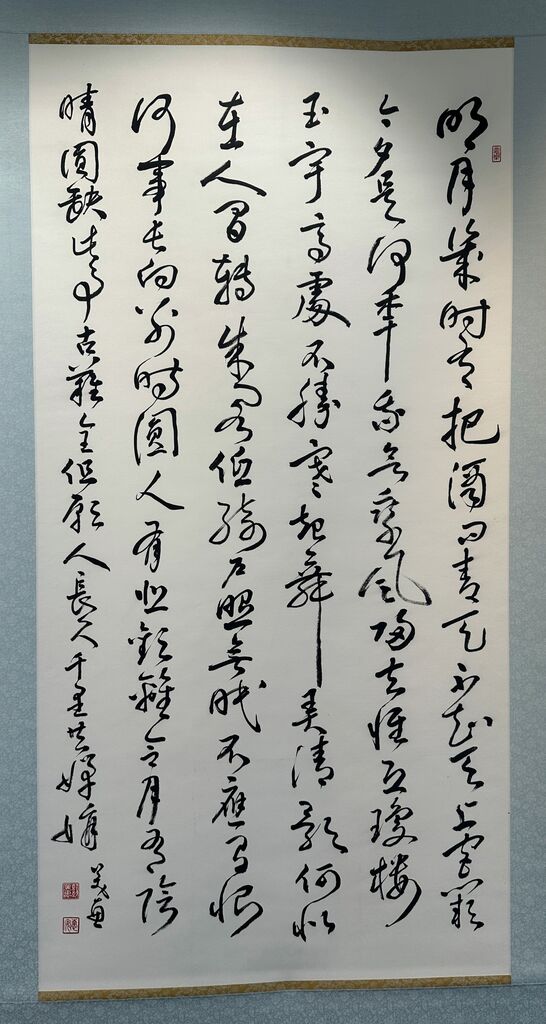 明月幾时有把酒問青天不知天上宮闕
今夕是何年我欲乘風歸去惟恐瓊樓
玉宇高處不勝寒起舞弄清影何似
在人間轉朱閣低綺戶照無眠不應有恨
何事長向別時圓人有悲歡離合月有陰
晴圓缺此事古難全但願人長久千里共嬋娟